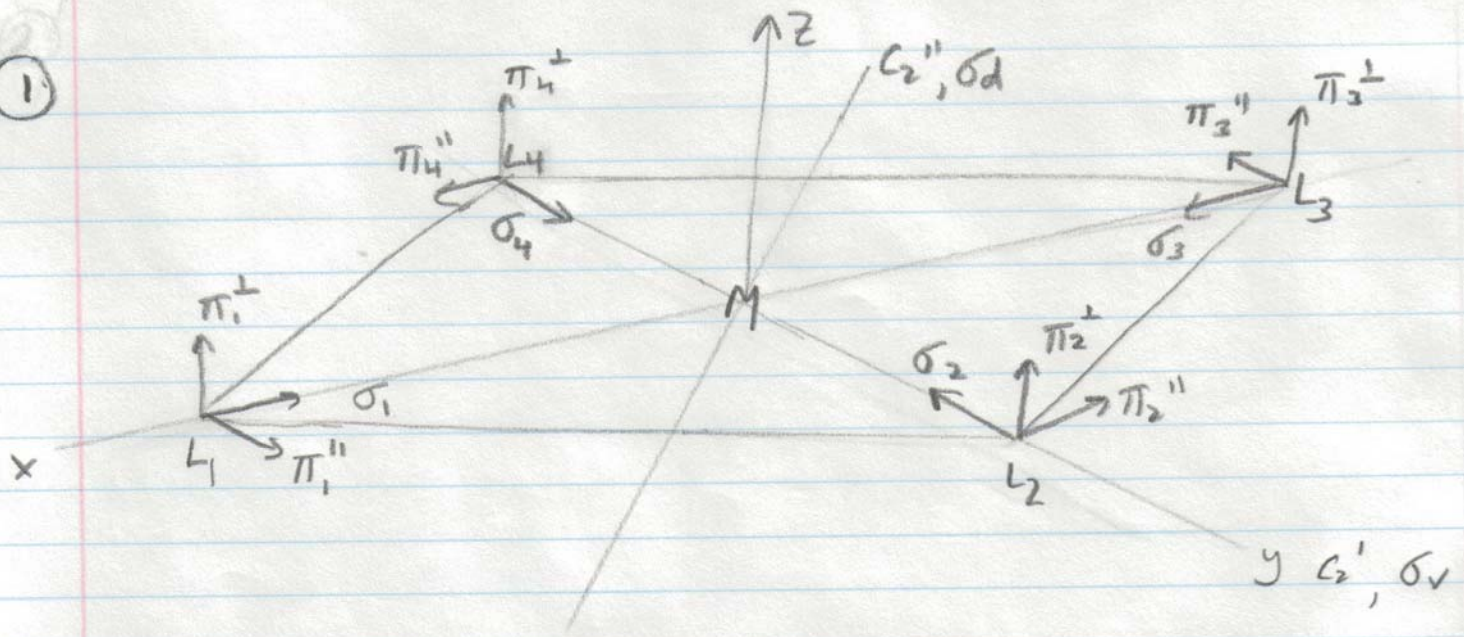 1
z
C₂", σd
π₄⊥
π₃" π₃⊥
π₄" L₄
L₃
σ₄
σ₃
π₁⊥
M
σ₂ π₂⊥
σ₁
π₂"
x L₁ π₁"
L₂
y C₂', σv